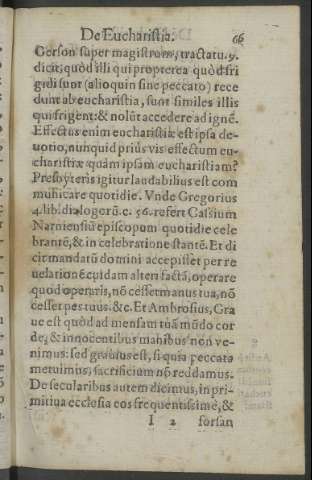 De Eucharistia. 66
Gerson super magistrum, tractatu.9.
dicit, quòd illi qui propterea quòd fri
gidi sunt (alioquin sine peccato) rece
dunt ab eucharistia, sunt similes illis
qui frigent: & nolũt accedere ad ignẽ.
Effectus enim eucharistiæ est ipsa de-
uotio, nunquid priùs vis effectum eu-
charistiæ quàm ipsam eucharistiam?
Presbyteris igitur laudabilius est com
municare quotidie. Vnde Gregorius
4. lib. dialogorũ. c. 56. refert Cassium
Narniensiũ episcopum quotidie cele
brantẽ, & in celebratione stantẽ. Et di
cit mandatũ domini accepisset per re
uelationẽ cuidam alteri factã, operare
quod operaris, nõ cesset manus tua, nõ
cesset pes tuus. &c. Et Ambrosius, Gra
ue est quòd ad mensam tuã mũdo cor
de, & innocentibus manibus non ve-
nimus: sed grauius est, si quia peccata
metuimus, sacrificium nõ reddamus.
De secularibus autem dicimus, in pri-
mitiua ecclesia eos frequentissimè, &
I 2 forsan